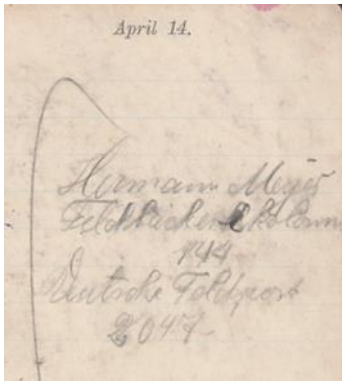 April 14.
Hermann Meyer
Feldbäckereikolonn
144
Deutsche Feldpost
2047